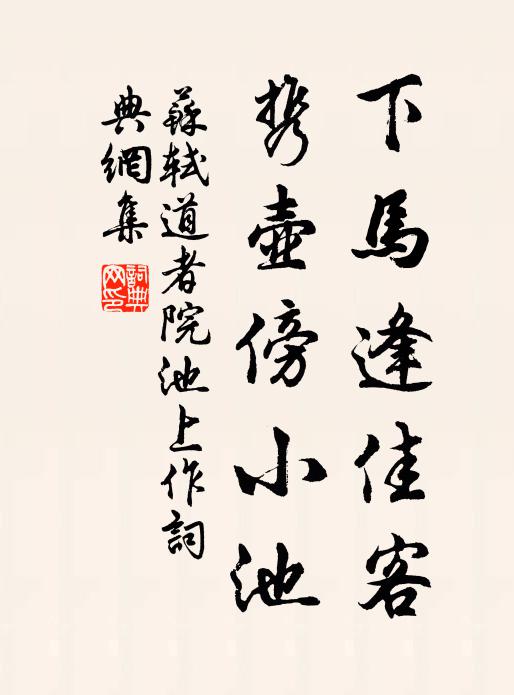 下馬逢佳客
攜壺傍小池
蘇軾道者院池上作詞
典網集
詞典
网印